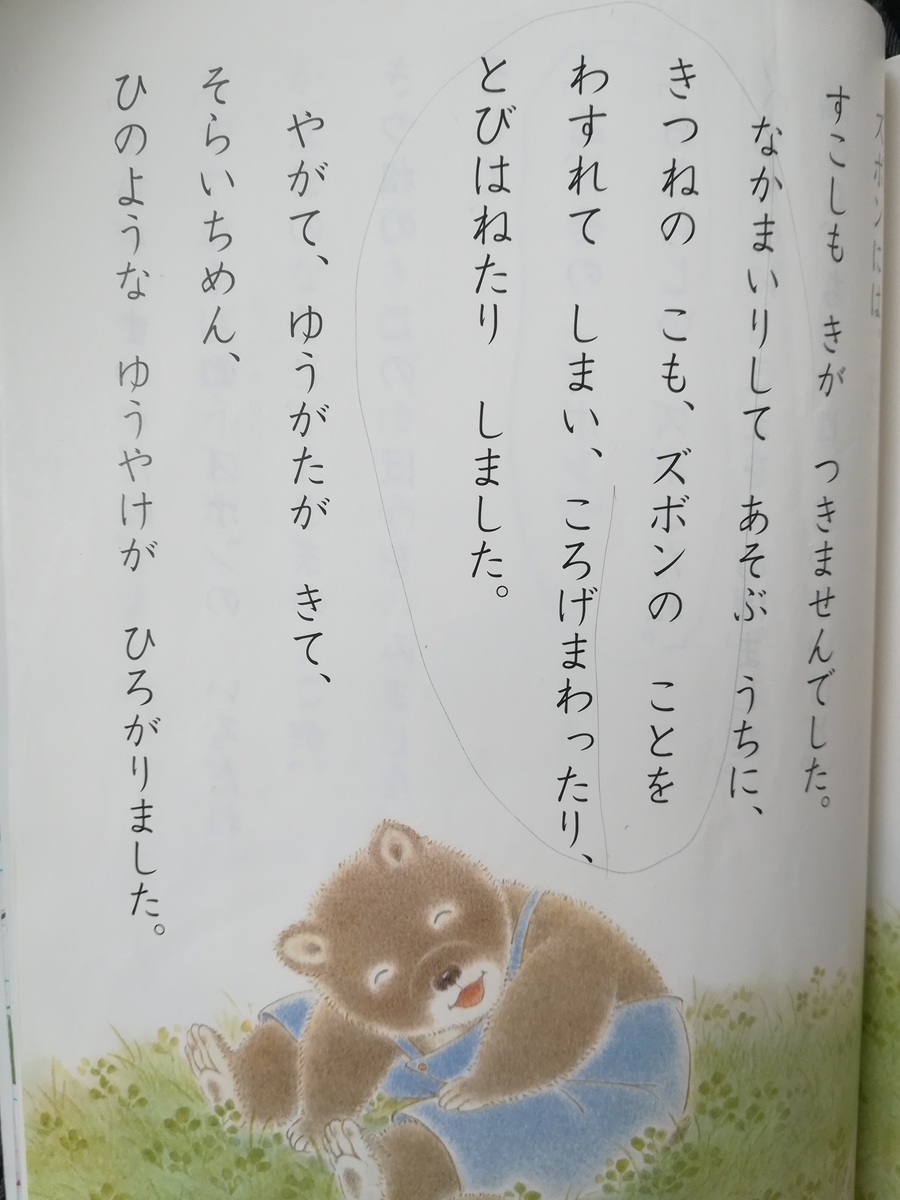 ズボンには
すこしも きが つきませんでした。
なかまいりして あそぶ うちに、
きつねの こも、ズボンの ことを
わすれて しまい、ころげまわったり、
とびはねたり しました。
やがて、ゆうがたが きて、
そらいちめん、
ひのような ゆうやけが ひろがりました。